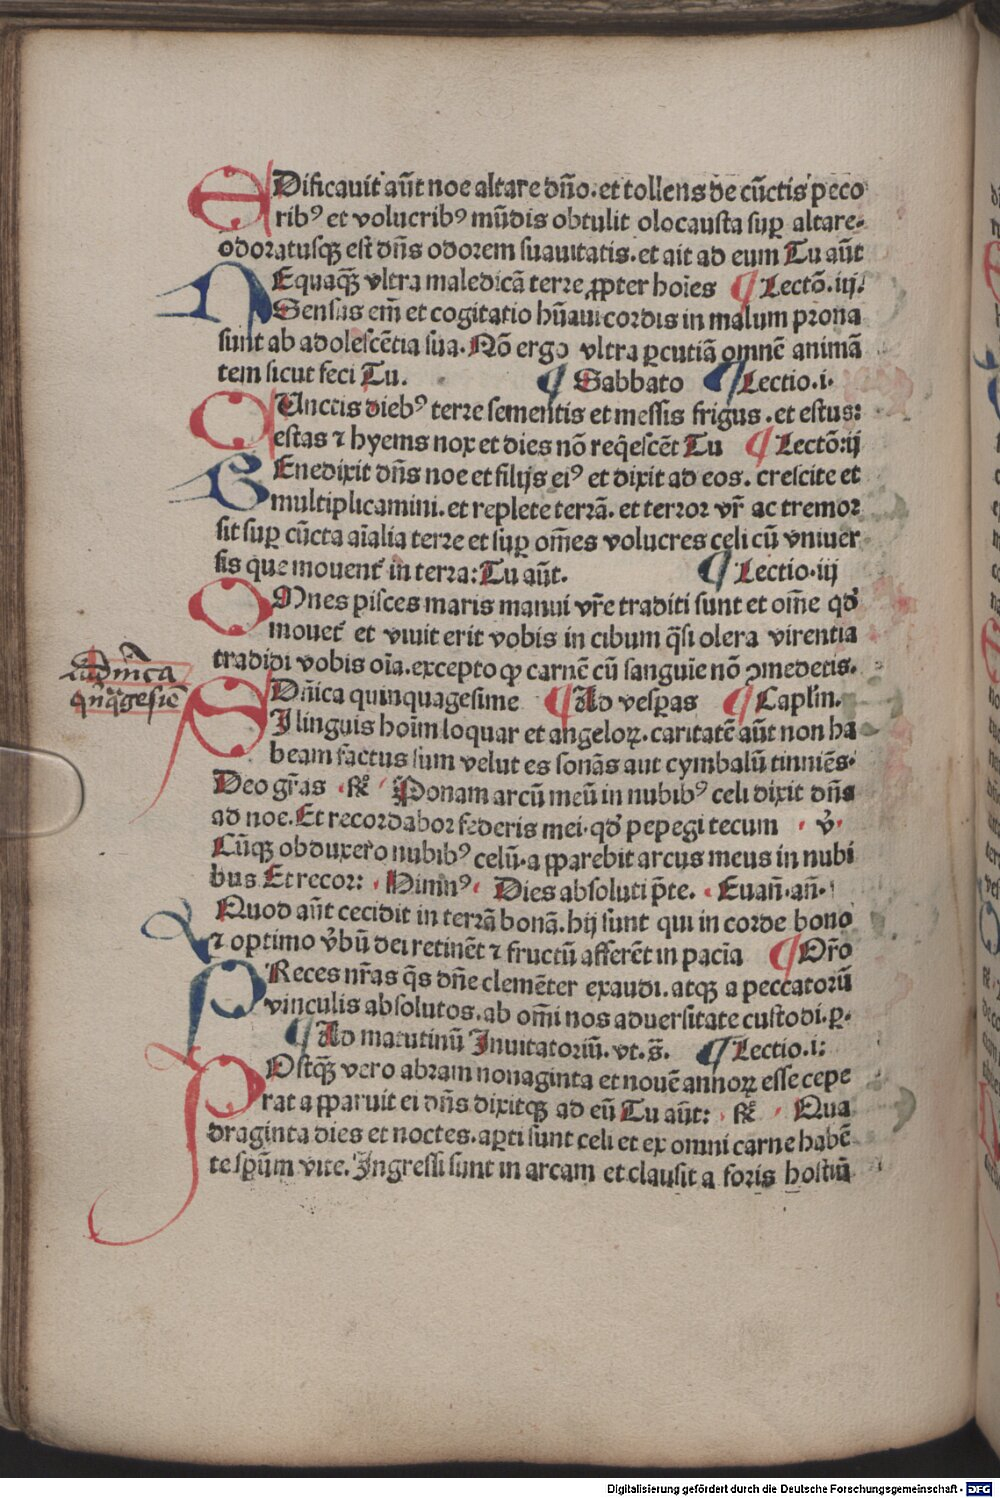 EDificauit aūt noe altare dño. et tollens de cūctis peco
ribꝰ et volucribꝰ mūdis obtulit olocausta suꝑ altare.
odoratusqꝫ est dñs odorem suauitatis. et ait ad eum Tu aūt
NEquaqꝫ vltra maledicā terre ꝓpter hoies ¶ Lectō. iij.
Sensus em̄ et cogitatio hūaui cordis in malum prona
sunt ab adolescētia sua. Nō ergo vltra ꝑcutiā omnē animā
tem sicut feci Tu. ¶ Sabbato ¶ Lectio. i.
CUnctis diebꝰ terre sementis et messis frigus. et estus:
estas ⁊ hyems nox et dies nō reqͥescēt Tu ¶ Lectō: ij
BEnedixit dñs noe et filijs eiꝰ et dixit ad eos. crescite et
multiplicamini. et replete terrā. et terror vr̄ ac tremor
sit suꝑ cūcta aīalia terre et suꝑ om̄es volucres celi cū vniuer
sis que mouent᷑ in terra: Tu aūt. ¶ Lectio. iij
OMnes pisces maris manui vr̄e traditi sunt et om̄e qđ
mouet᷑ et viuit erit vobis in cibum q̄si olera virentia
tradidi vobis oīa. excepto ꝙ carnē cū sanguīe nō ꝯmedetis.
Dn̄ica quinquagesime ¶ Ad vesꝑas ¶ Caplm̄.
SI linguis hoīm loquar et angeloꝝ. caritatē aūt non ha
beam factus sum velut es sonās aut cymbalū tinniēs.
Deo gr̄as . ℟ Ponam arcū meū in nubibꝰ celi dixit dñs
ad noe. Et recordabor federis mei. qđ pepegi tecum . ℣.
Cūqꝫ obduxero nubibꝰ celū. a ꝑparebit arcus meus in nubi
bus Et recor: . Himnꝰ. Dies absoluti p̄te. . Euan̄. an̄.
Quod aūt cecidit in terrā bonā. hij sunt qui in corde bono
⁊ optimo v̄bū dei retinēt ⁊ fructū afferēt in pacīa ¶ Or̄o
PReces nr̄as q̄s dn̄e clemēter exaudi. atqꝫ a peccatorū
vinculis absolutos. ab om̄i nos aduersitate custodi. ꝑ.
¶ Ad matutinū Inuitatoriū. vt. s̄. ¶ Lectio. i:
POstqꝫ vero abram nonaginta et nouē annoꝝ esse cepe
rat a ꝑparuit ei dñs dixitqꝫ ad eū Tu aūt: . ℟ . Qua
draginta dies et noctes. aꝑti sunt celi et ex omni carne habē
te sp̄um vite. Ingressi sunt in arcam et clausit a foris hostiū
dn̄ica
qn̄q̄gesiē
Digitalisierung gefördert durch die Deutsche Forschungsgemeinschaft - DFG